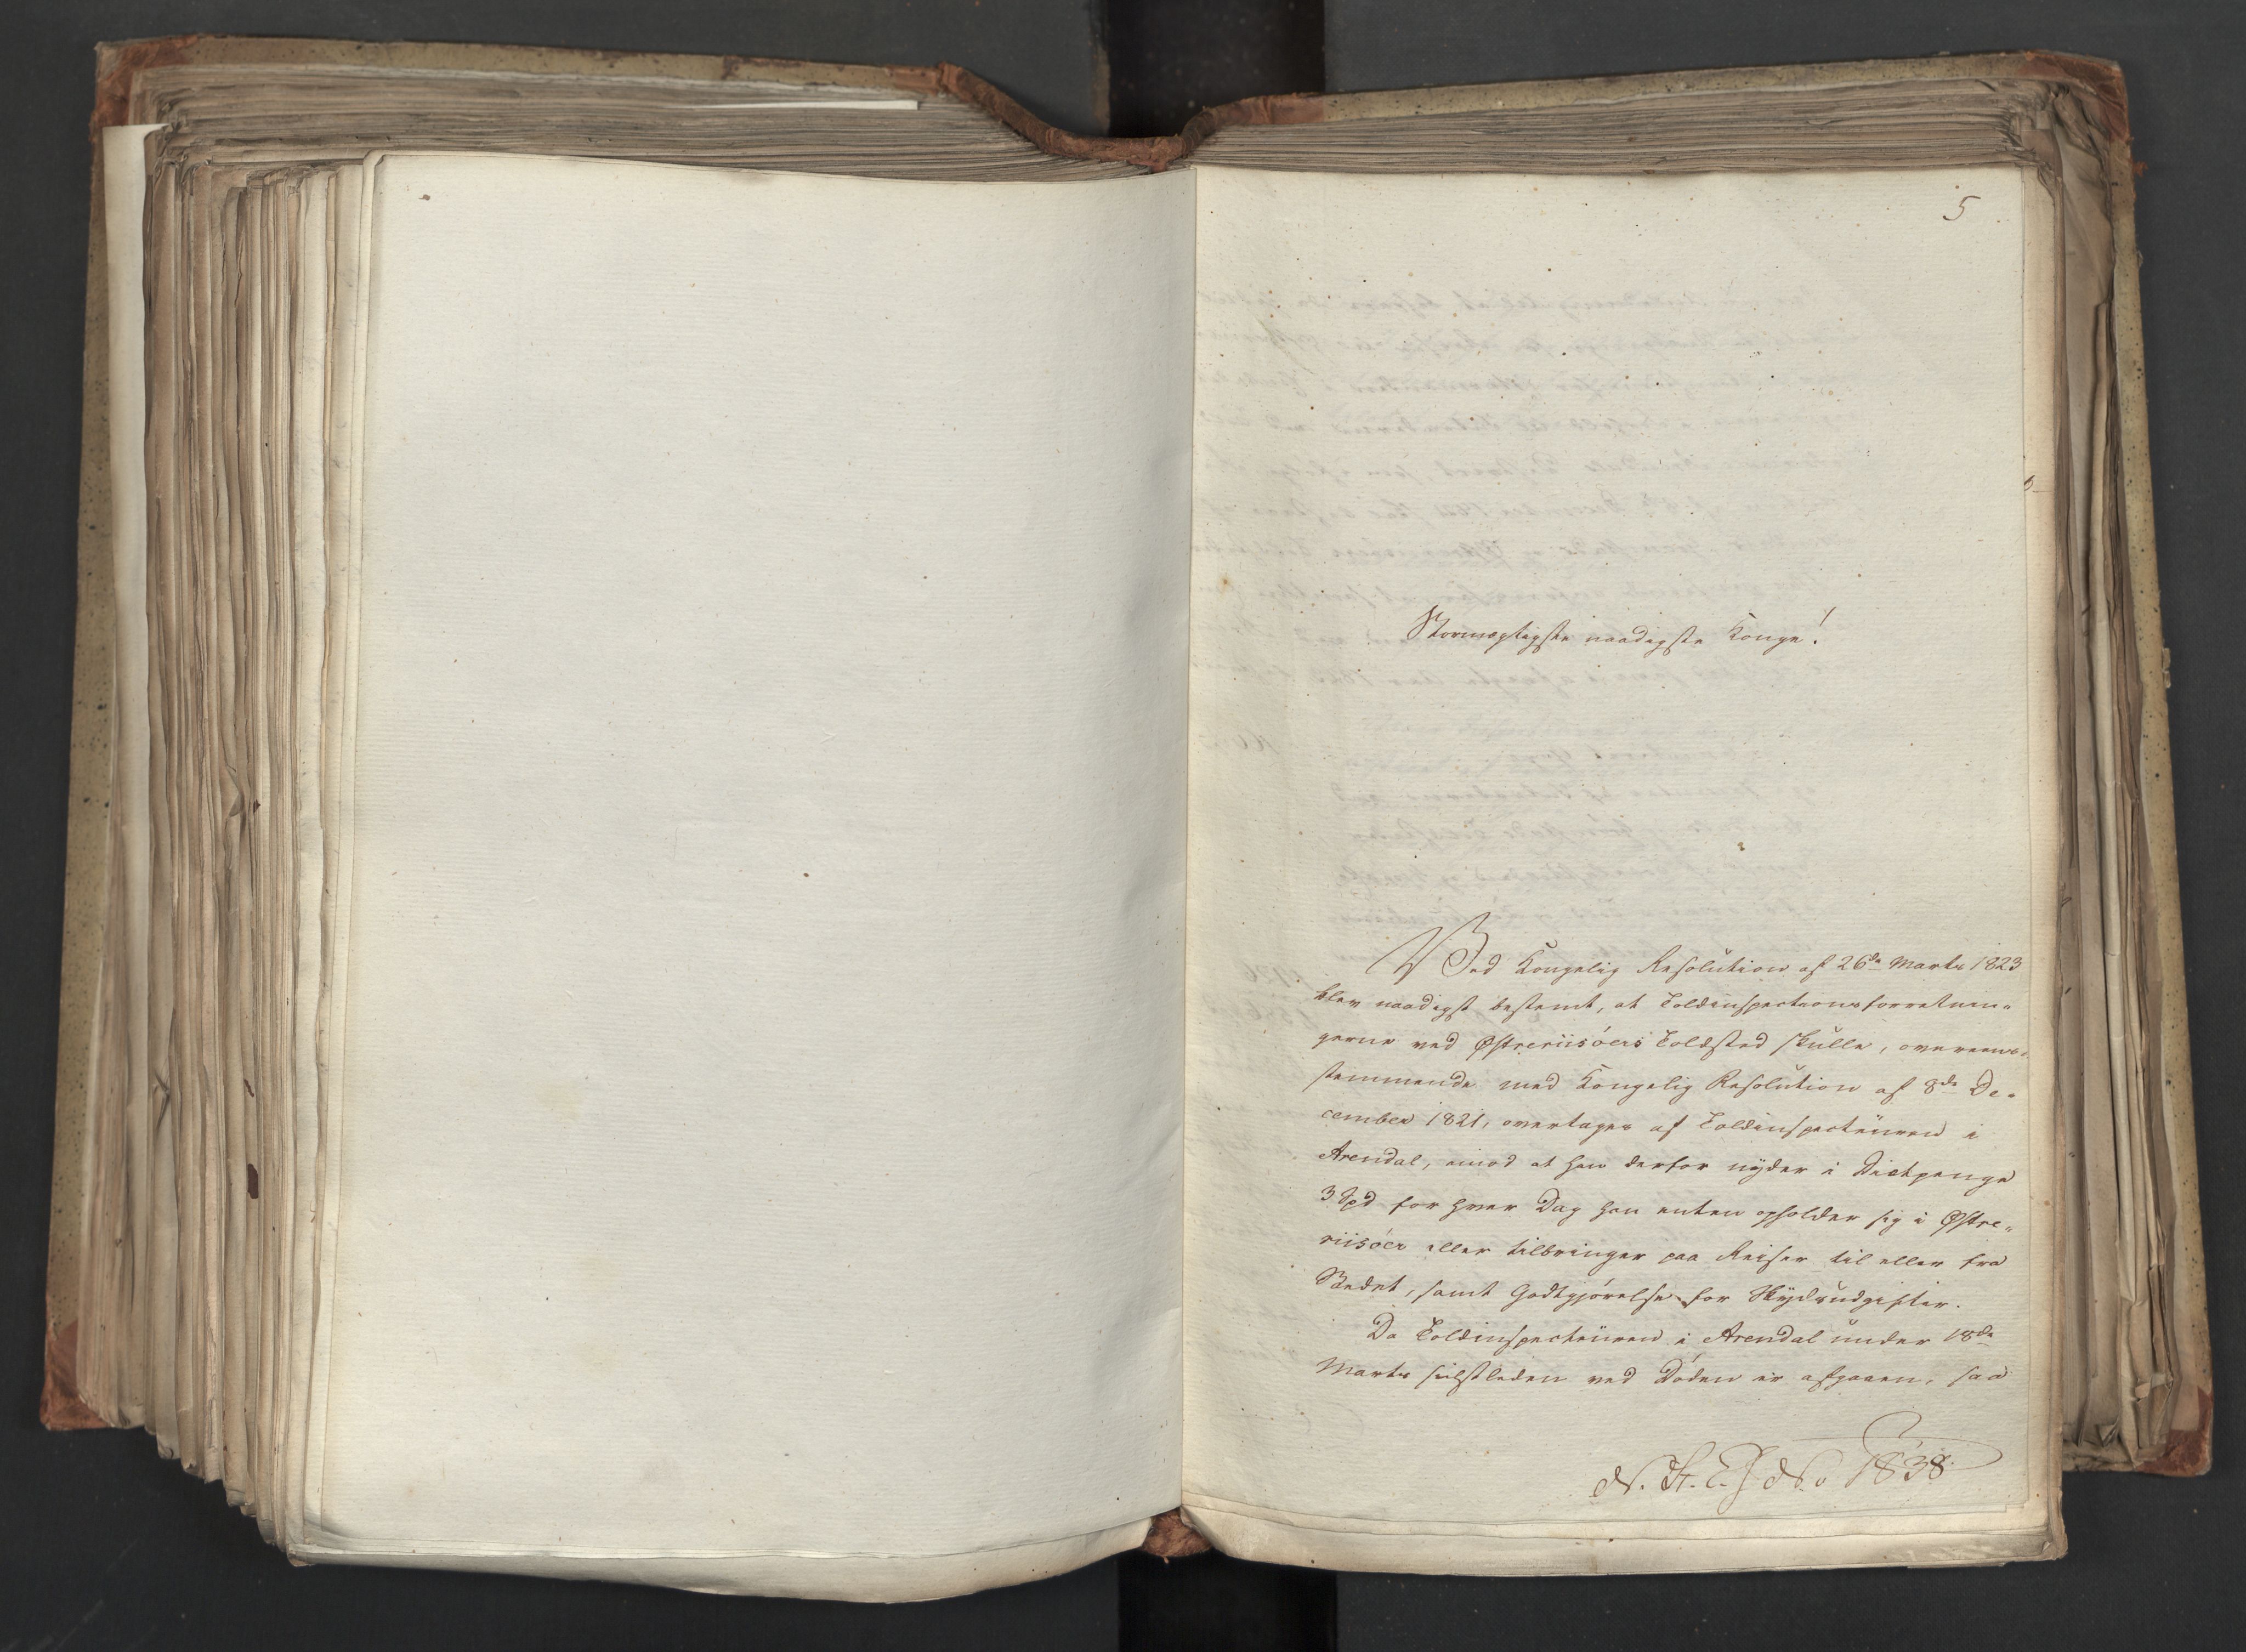 5
Stormægtigste naadigste Konge!
Ved Kongelig Resolution af 26de Marts 1823
blev naadigst bestemt, at Toldinspectionsforretnin„
gerne ved Østreriisöers Toldsted skulle, overeens„
stemmende med Kongelig Resolution af 8de De„
cember 1821, overtages af Toldinspecteuren i
Arendal, imod at han derfor nyder i Diætpenge
3 Spd for hver Dag han enten opholder sig i Østre„
riisöer eller tilbringer paa Reiser til eller fra
Stedet, samt Godtgjörelse for Skydsudgifter.
Da Toldinspecteuren i Arendal under 18de
Marts sidstleden ved Döden er afgaaen, saa
N. St. E. J No 1838